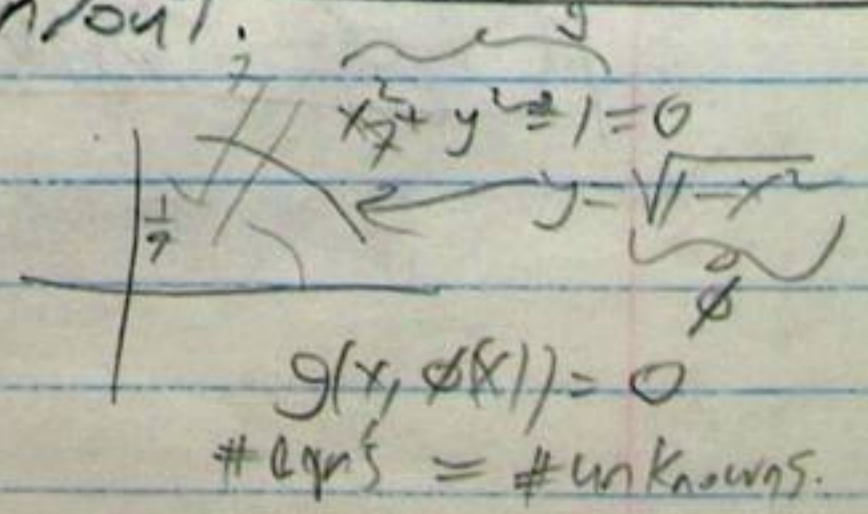 g
x² + y² - 1 = 0
y = √1-x²
φ
g(x, φ(x)) = 0
#eqn's = #unknowns.